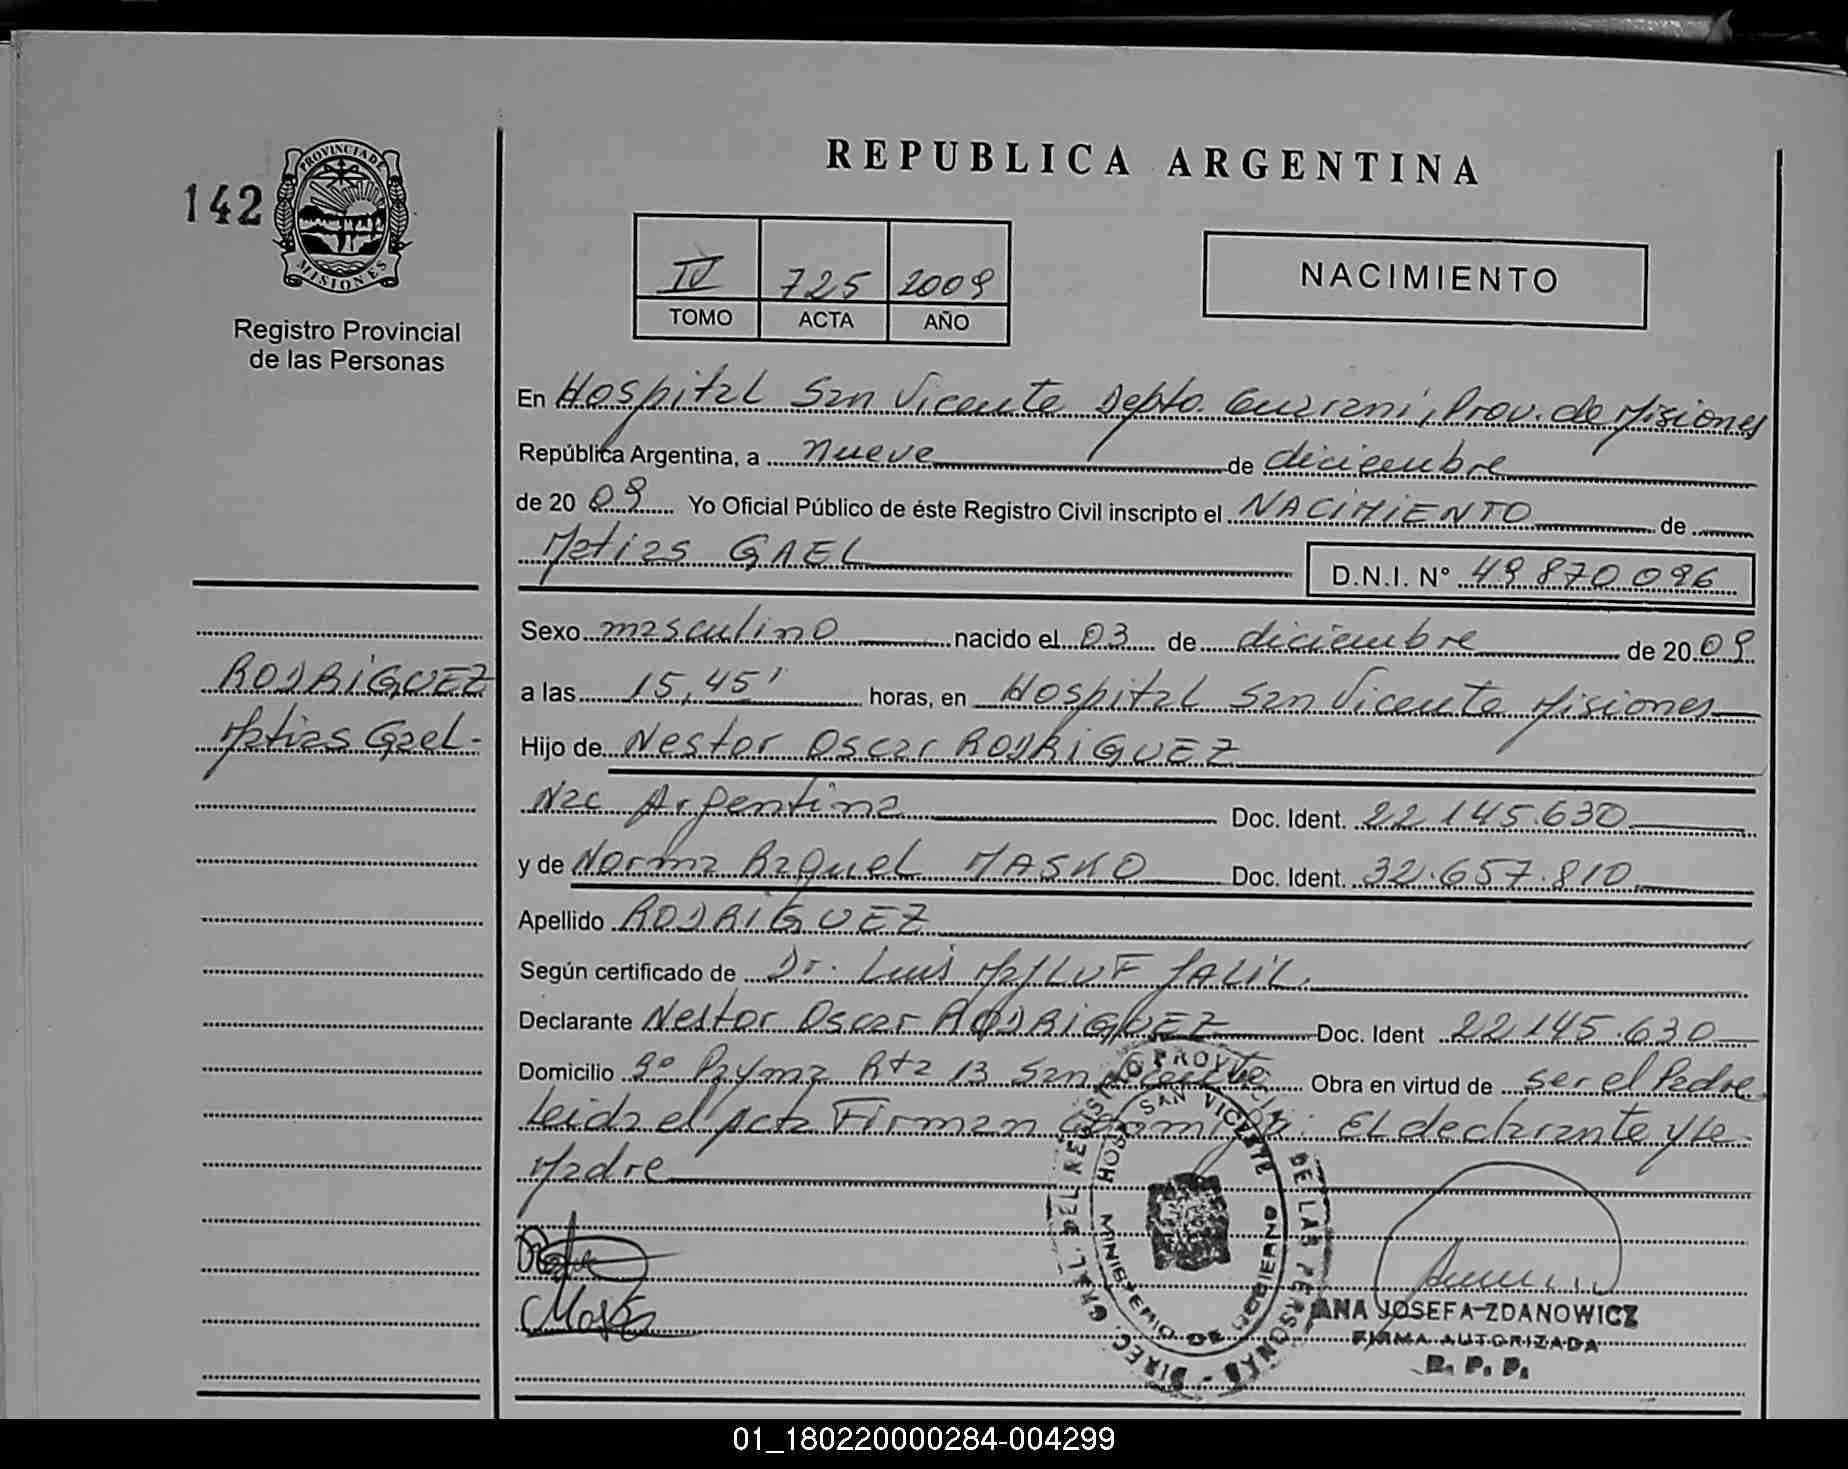 REPUBLICA ARGENTINA
142
PROVINCIA DE
MISIONES
Registro Provincial
de las Personas
IV 725 2009
TOMO ACTA AÑO
NACIMIENTO
En Hospital San Vicente Depto. Guarani, Prov. de Misiones
República Argentina, a nueve de diciembre
de 20 09 Yo Oficial Público de éste Registro Civil inscripto el NACIMIENTO de
Matias GAEL D.N.I. N° 49 870 096
Sexo masculino nacido el 03 de diciembre de 20 09
RODRIGUEZ
Matias Gael-
a las 15,45' horas, en Hospital San Vicente Misiones
Hijo de Nestor Oscar RODRIGUEZ
Nac Argentina Doc. Ident. 22 145.630
y de Norma Raquel MASKO Doc. Ident. 32.657.810
Apellido RODRIGUEZ
Según certificado de Dr. Luis JALIL.
Declarante Nestor Oscar RODRIGUEZ Doc. Ident 22 145.630
Domicilio Bº Ruta 13 San Vicente Obra en virtud de ser el Padre
Leida el Acta Firman Conmigo: El declarante y la
Madre
DIREC. GRAL. DEL REGISTRO PROVINCIAL DE LAS PERSONAS
HOSP. SAN VICENTE
MINISTERIO DE GOBIERNO
Masko
ANA JOSEFA ZDANOWICZ
FIRMA AUTORIZADA
R. P. P.
01_180220000284-004299